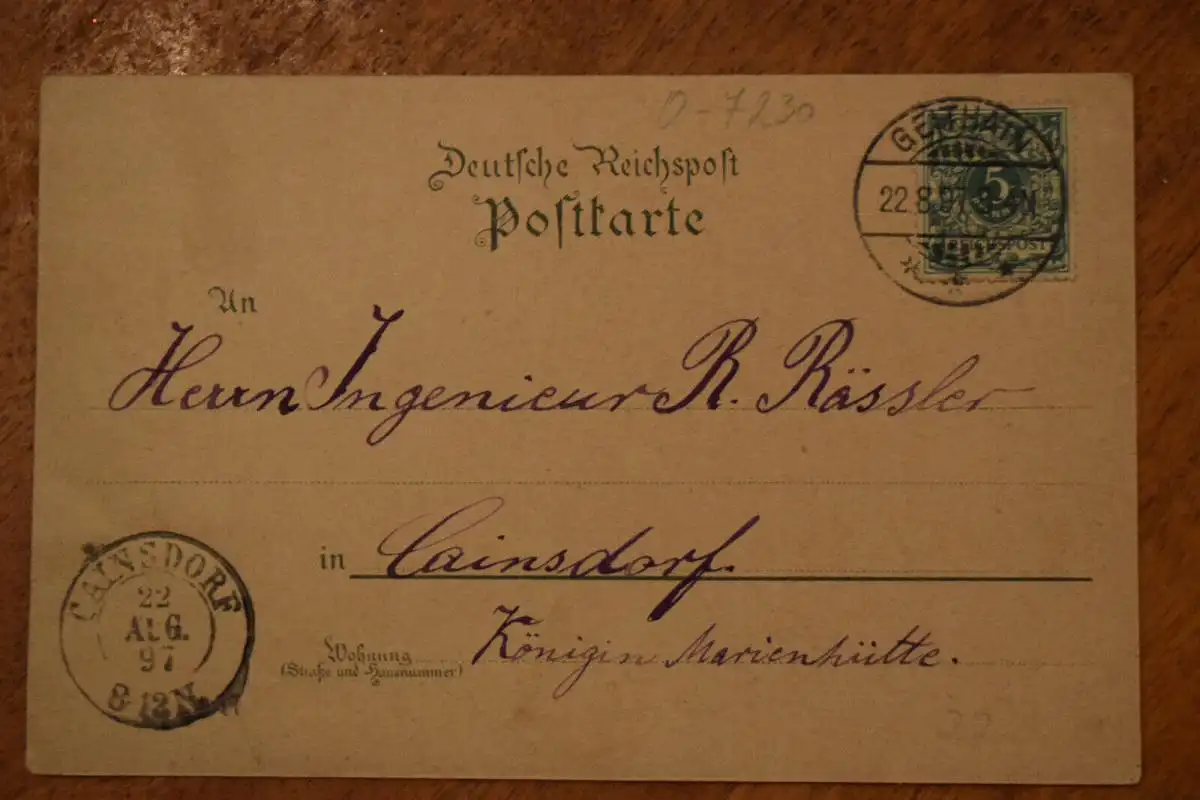 O-7230
Deutsche Reichspost
Postkarte
GEITHAIN
22.8.97. 3-4N
5
REICHSPOST
An
Herrn Ingenieur R. Rässler
in Cainsdorf.
Wohnung
(Straße und Hausnummer)
Königin Marienhütte.
CAINSDORF
22
AUG.
97
8-12N.